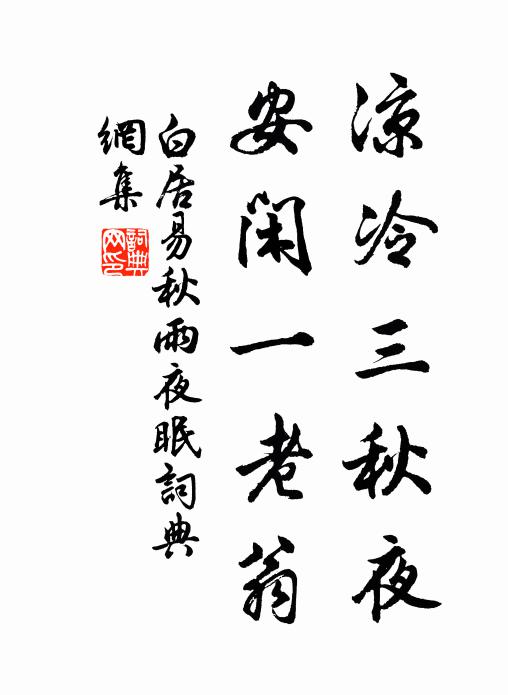 凉冷三秋夜
安闲一老翁
白居易秋雨夜眠詞典
網集
詞典網印